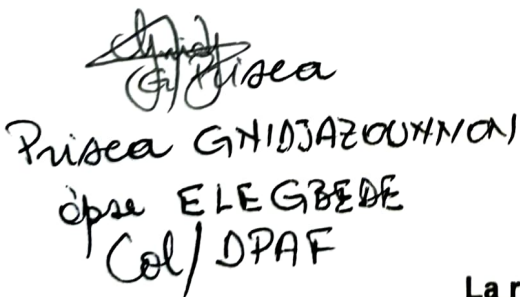 Prisca
Prisca GNIDJAZOUNNON
épse ELEGBEDE
Col/DPAF
La